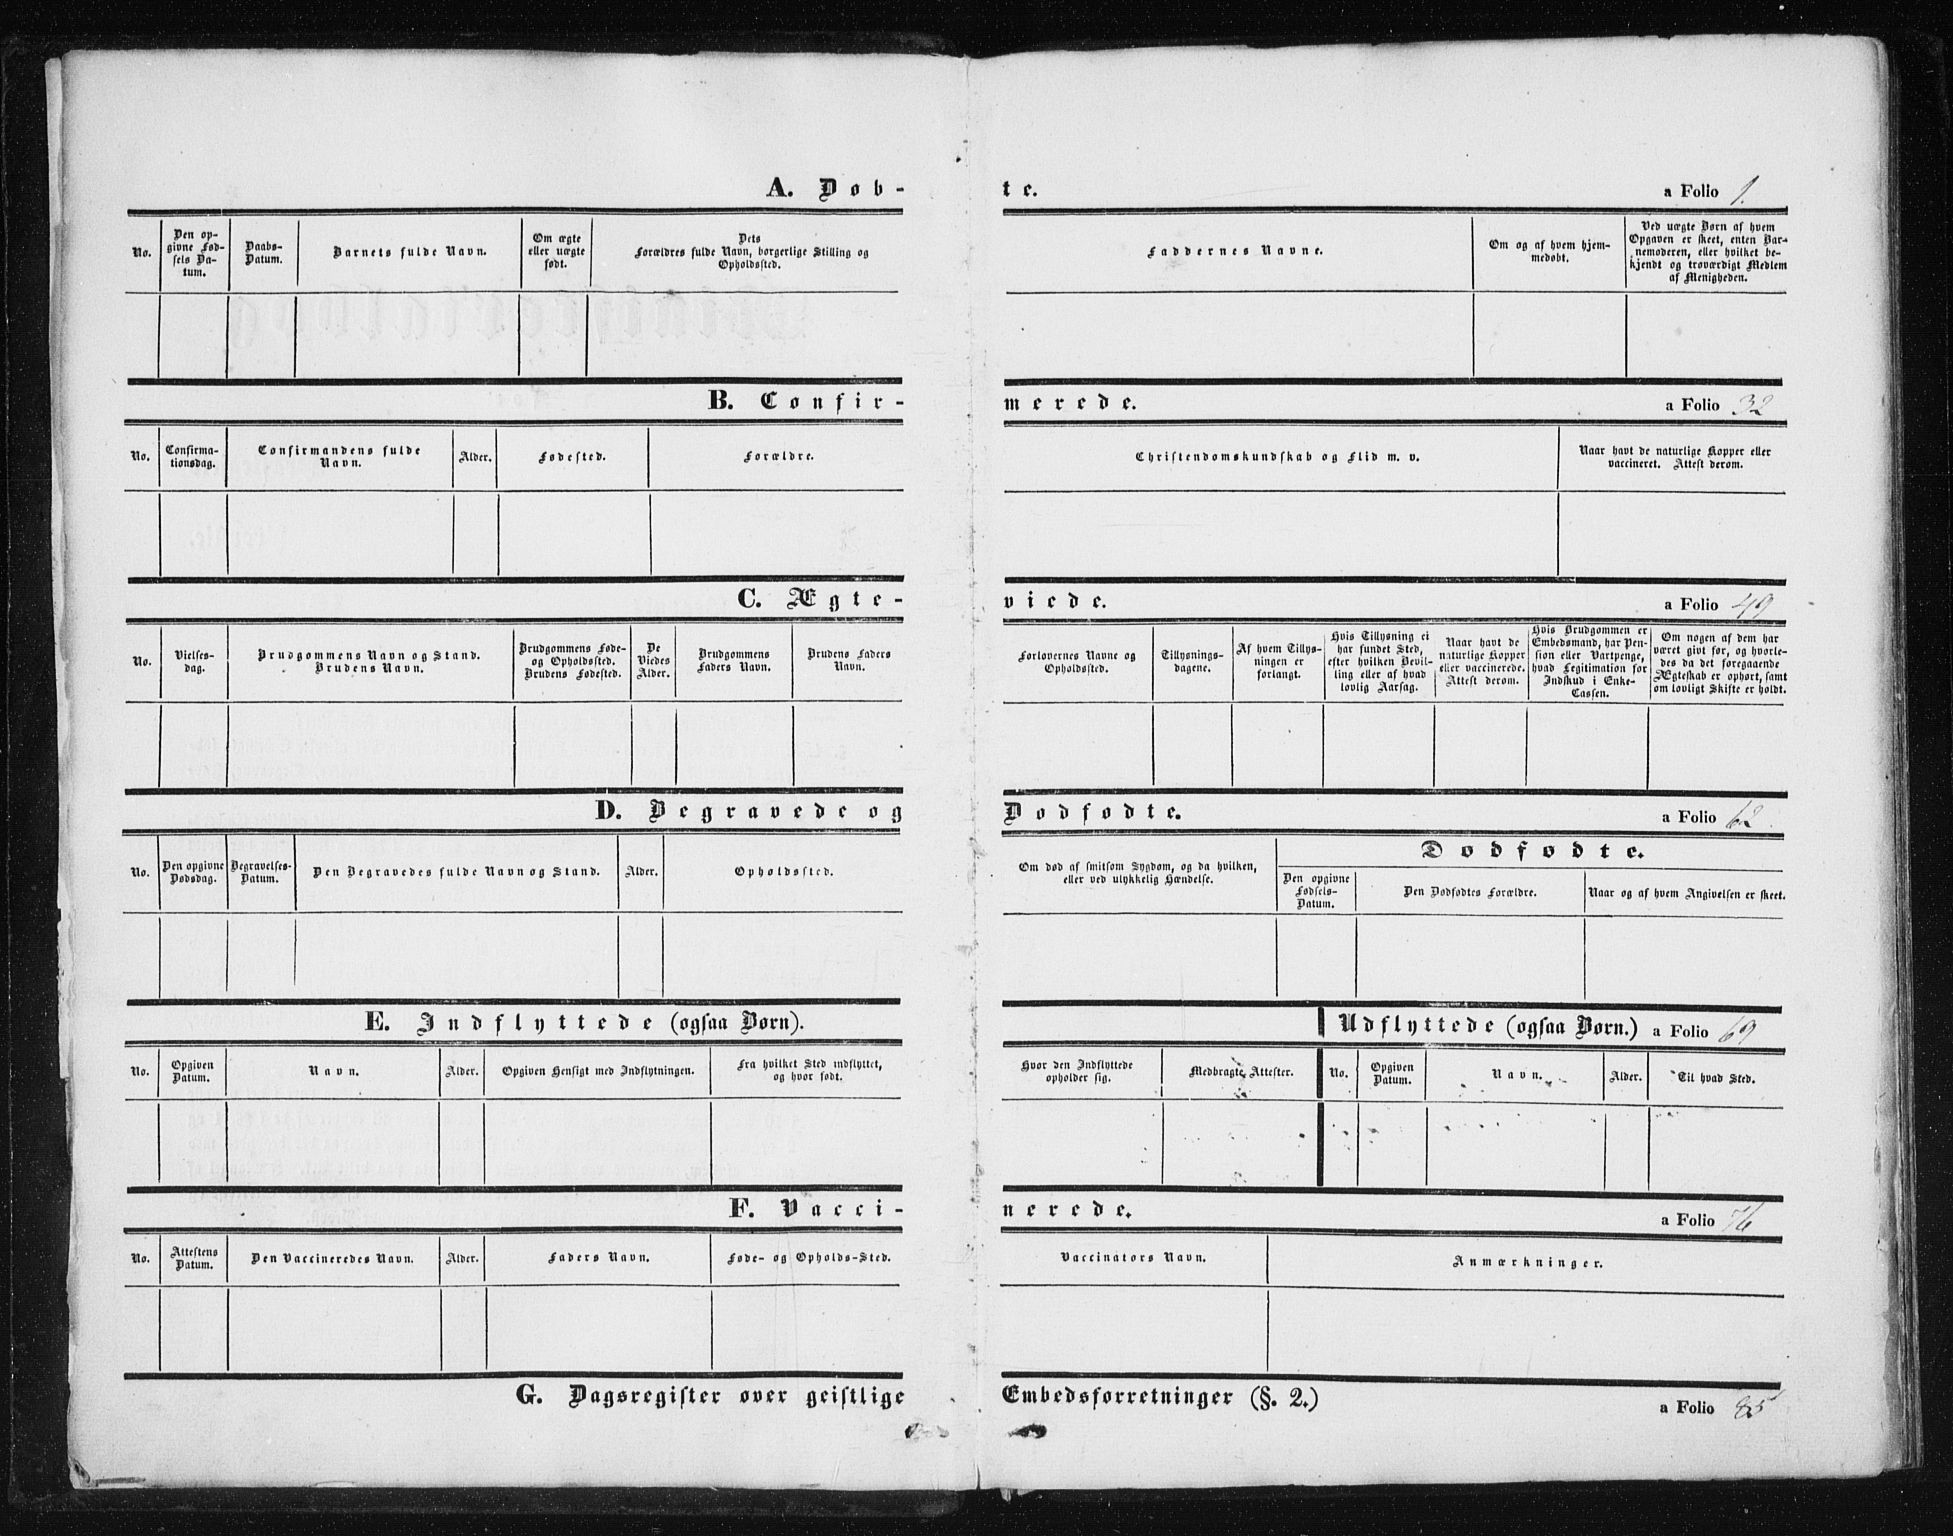 A. Døbte. a Folio 1.
No.
Den opgivne Fødsels Datum.
Daabs-Datum.
Barnets fulde Navn.
Om ægte eller uægte født.
Dets Forældres fulde Navn, borgerlige Stilling og Opholdssted.
Faddernes Navne.
Om og af hvem hjemmedøbt.
Ved uægte Børn af hvem Opgaven er skeet, enten Barnemoderen, eller hvilket bekjendt og troværdigt Medlem af Menigheden.
B. Confirmerede. a Folio 32
No.
Confirmationsdag.
Confirmandens fulde Navn.
Alder.
Fødested.
Forældre.
Christendomskundskab og Flid m. v.
Naar havt de naturlige Kopper eller vaccineret. Attest derom.
C. Ægteviede. a Folio 49
No.
Vielsesdag.
Brudgommens Navn og Stand. Brudens Navn.
Brudgommens Føde- og Opholdssted. Brudens Fødested.
De Viedes Alder.
Brudgommens Faders Navn.
Brudens Faders Navn.
Forlovernes Navne og Opholdssted.
Tillysningsdagene.
Af hvem Tillysningen er forlangt.
Hvis Tillysning ei har fundet Sted, efter hvilken Bevilling eller af hvad lovlig Aarsag.
Naar havt de naturlige Kopper eller vaccinerede. Attest derom.
Hvis Brudgommen er Embedsmand, har Pension eller Vartpenge, hvad Legitimation for Indskud i Enke-Cassen.
Om nogen af dem har været givt før, og hvorledes da det foregaaende Ægteskab er ophørt, samt om lovligt Skifte er holdt.
D. Begravede og Dødfødte. a Folio 62
No.
Den opgivne Dødsdag.
Begravelses-Datum.
Den Begravedes fulde Navn og Stand.
Alder.
Opholdssted.
Om død af smitsom Sygdom, og da hvilken, eller ved ulykkelig Hændelse.
Dødfødte.
Den opgivne Fødsels-Datum.
Den Dødfødtes Forældre.
Naar og af hvem Angivelsen er skeet.
E. Indflyttede (ogsaa Børn). Udflyttede (ogsaa Børn.) a Folio 69
No.
Opgiven Datum.
Navn.
Alder.
Opgiven Hensigt med Indflytningen.
Fra hvilket Sted indflyttet, og hvor født.
Hvor den Indflyttede opholder sig.
Medbragte Attester.
No.
Opgiven Datum.
Navn.
Alder.
Til hvad Sted.
F. Vaccinerede. a Folio 76
No.
Attestens Datum.
Den Vaccineredes Navn.
Alder.
Faders Navn.
Føde- og Opholds-Sted.
Vaccinators Navn.
Anmærkninger.
G. Dagsregister over geistlige Embedsforretninger (§. 2.) a Folio 85